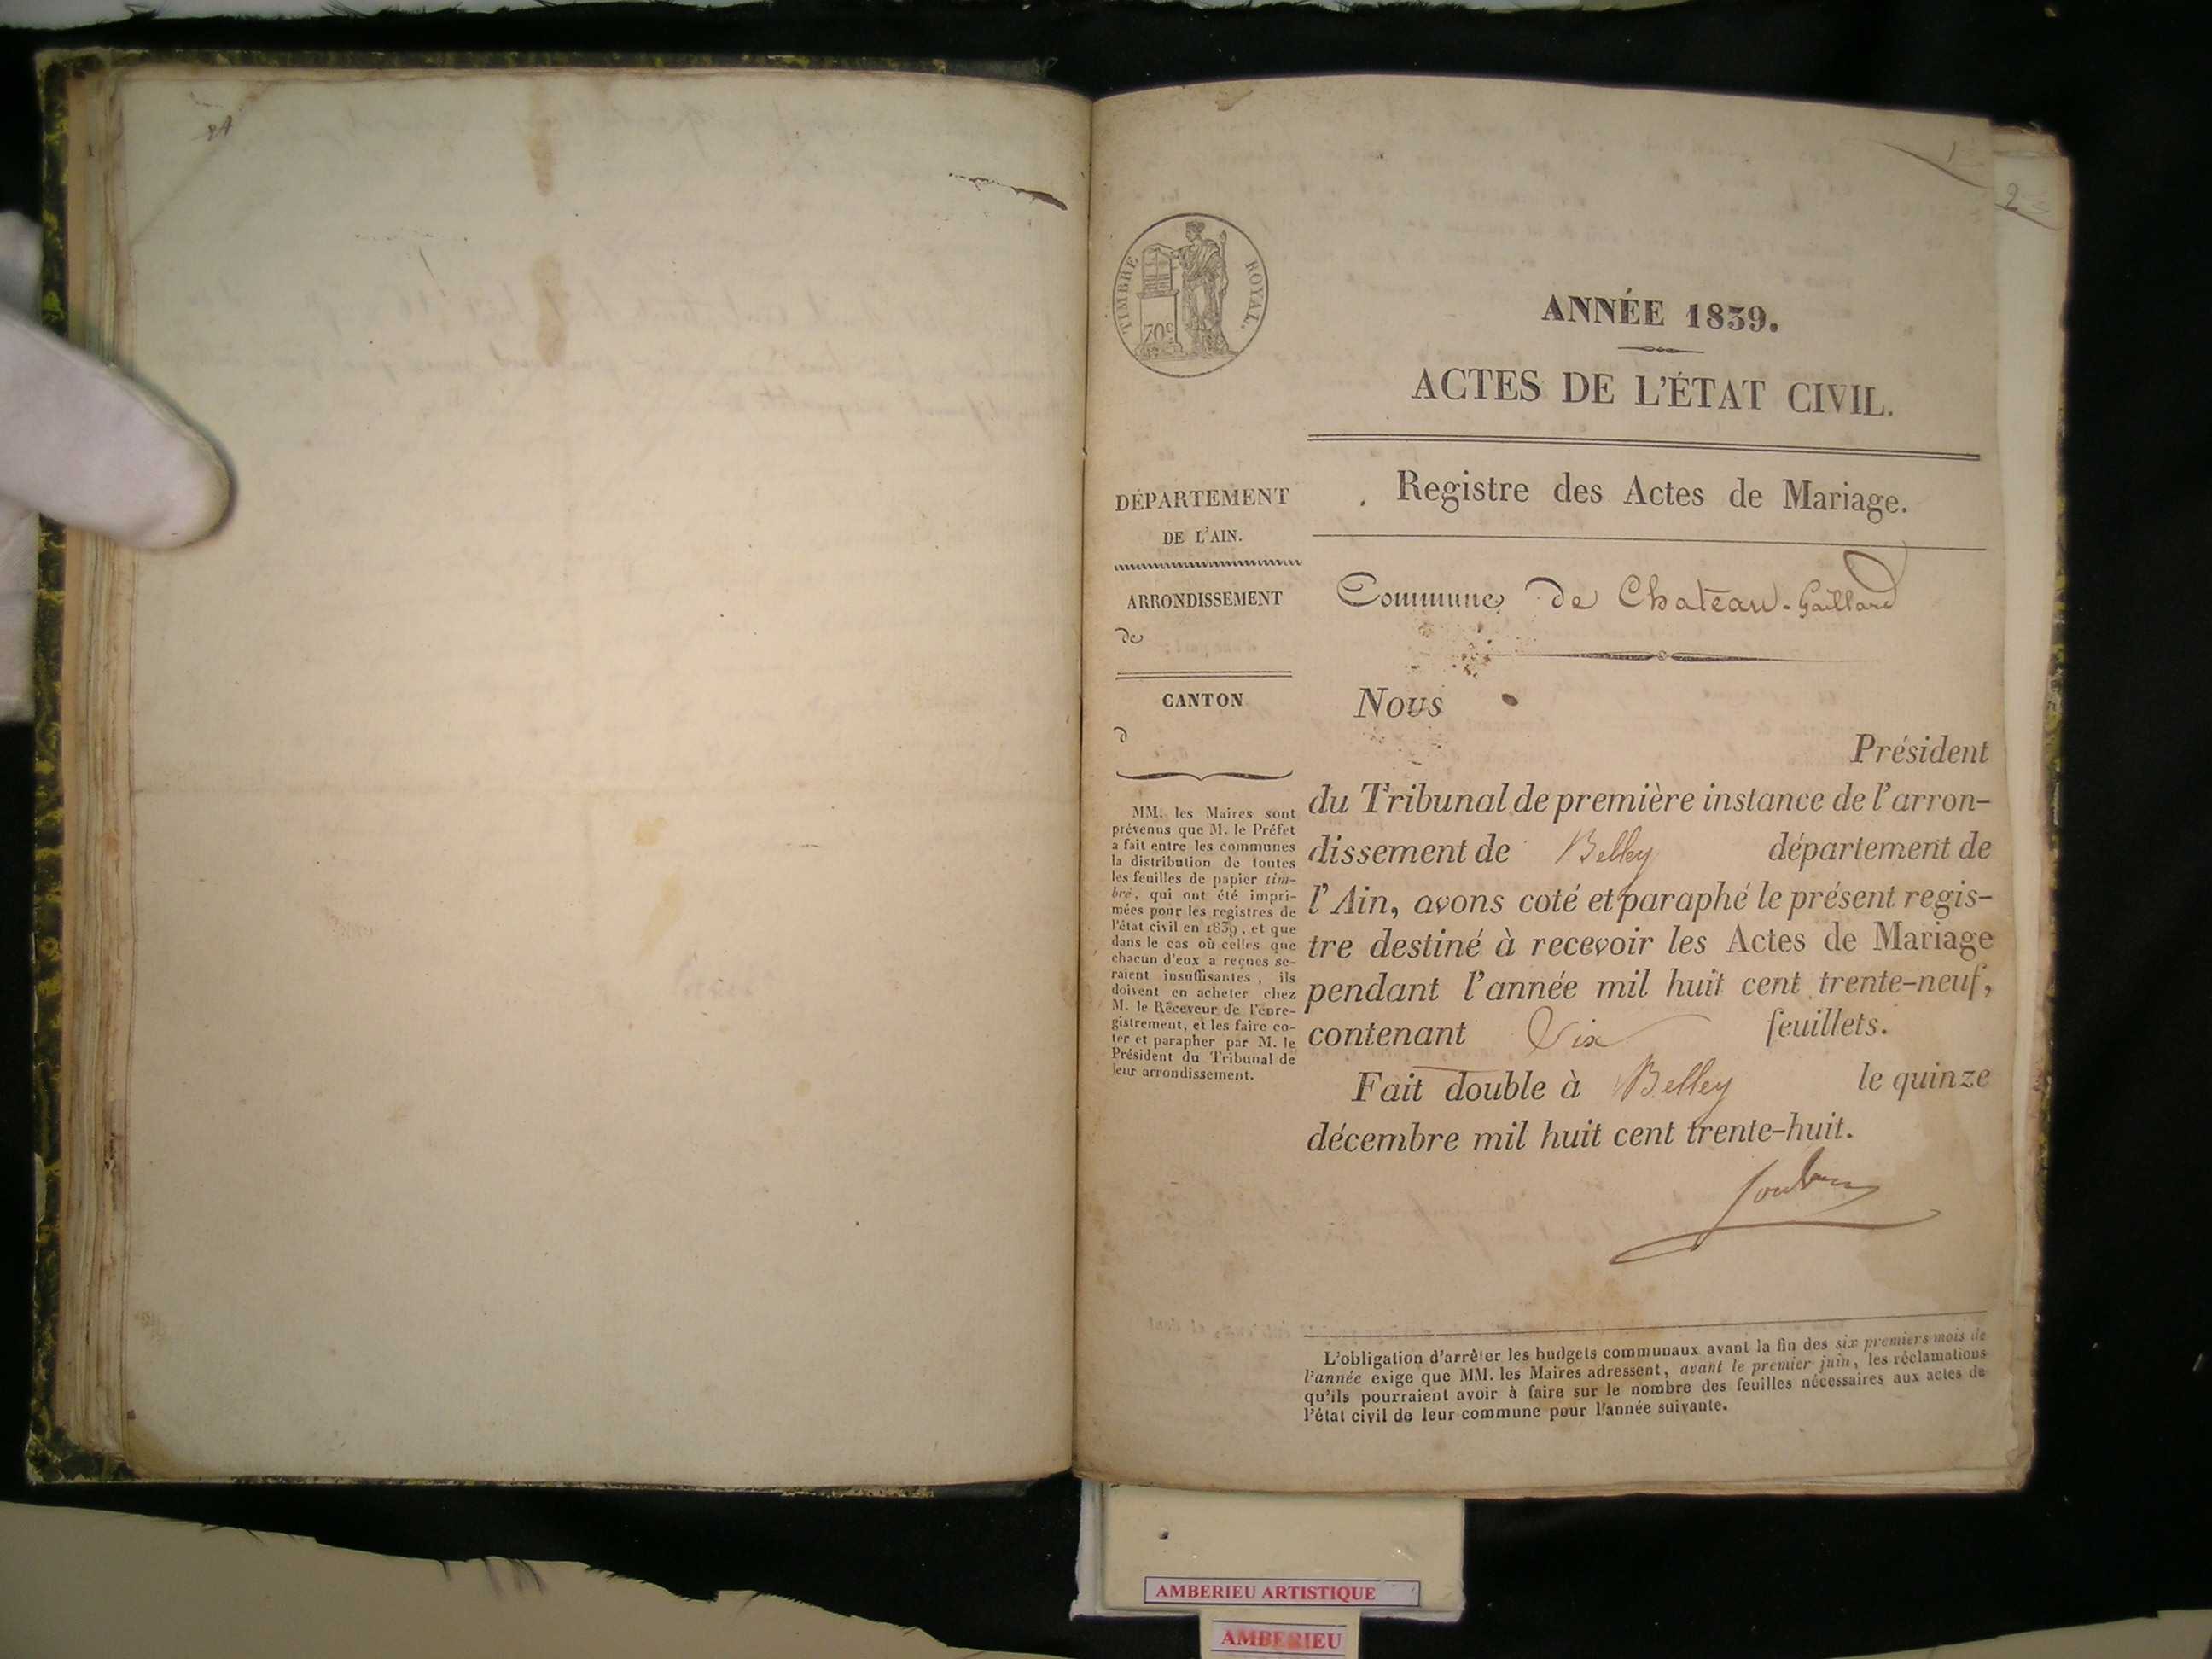 1
2
TIMBRE ROYAL.
70c
ANNÉE 1839.
ACTES DE L'ÉTAT CIVIL.
Registre des Actes de Mariage.
DÉPARTEMENT
DE L'AIN.
ARRONDISSEMENT
de
CANTON
d
MM. les Maires sont
prévenus que M. le Préfet
a fait entre les communes
la distribution de toutes
les feuilles de papier tim-
bré, qui ont été impri-
mées pour les registres de
l'état civil en 1839, et que
dans le cas où celles que
chacun d'eux a reçues se-
raient insuffisantes, ils
doivent en acheter chez
M. le Receveur de l'enre-
gistrement, et les faire co-
ter et parapher par M. le
Président du Tribunal de
leur arrondissement.
Commune de Chateau-Gaillard
Nous
Président
du Tribunal de première instance de l'arron-
dissement de Belley département de
l'Ain, avons coté et paraphé le présent regis-
tre destiné à recevoir les Actes de Mariage
pendant l'année mil huit cent trente-neuf,
contenant feuillets.
Fait double à Belley le quinze
décembre mil huit cent trente-huit.
L'obligation d'arrêter les budgets communaux avant la fin des six premiers mois de
l'année exige que MM. les Maires adressent, avant le premier juin, les réclamations
qu'ils pourraient avoir à faire sur le nombre des feuilles nécessaires aux actes de
l'état civil de leur commune pour l'année suivante.
AMBERIEU ARTISTIQUE
AMBERIEU